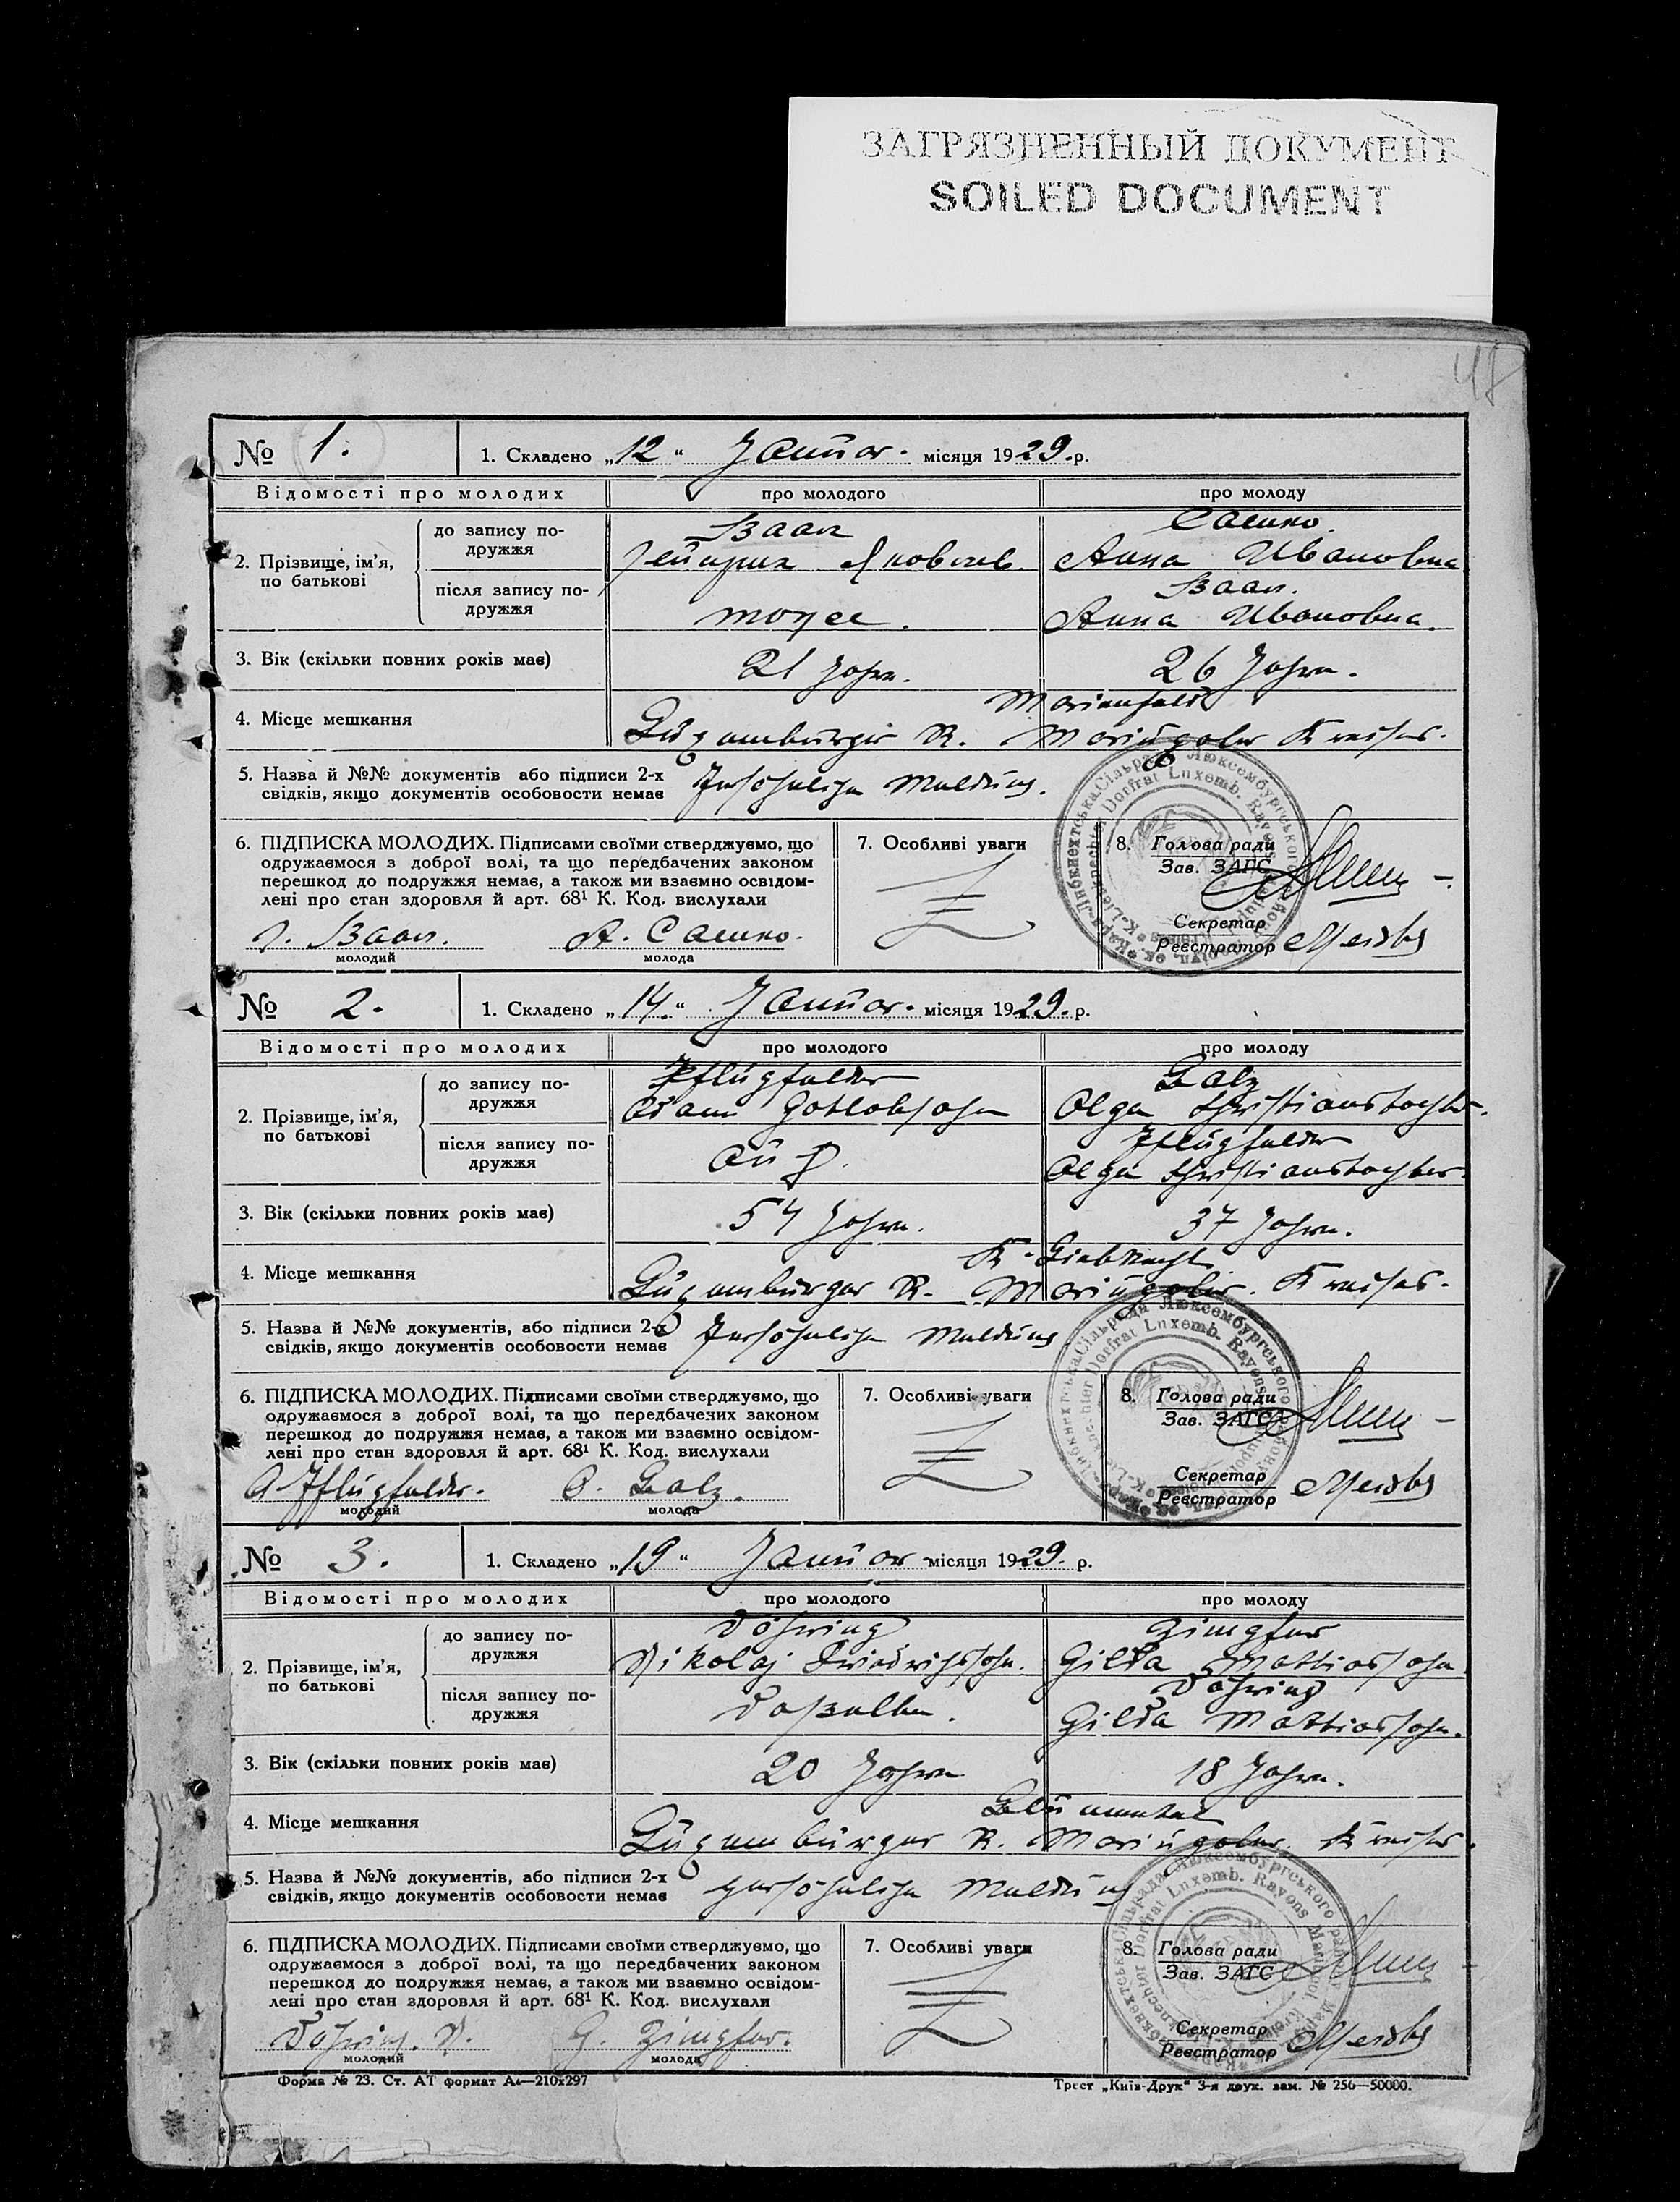 ЗАГРЯЗНЕННЫЙ ДОКУМЕНТ
SOILED DOCUMENT
48
№ 1. 1. Складено „12“ Januar. місяця 1929. р.
Відомості про молодих про молодого про молоду
2. Прізвище, ім’я, по батькові
до запису подружжя
Ваал Сашко.
Гейнрих Яковлев. Анна Ивановна
після запису подружжя
Ваал.
тоже. Анна Ивановна.
3. Вік (скільки повних років має) 21 Jahre. 26 Jahre.
4. Місце мешкання
Marienfeld
Luxemburger R. Mariupoler Kreises.
5. Назва й №№ документів або підписи 2-х
свідків, якщо документів особовости немає Persöhnliche Meldung.
6. ПІДПИСКА МОЛОДИХ. Підписами своїми стверджуємо, що
одружаємося з доброї волі, та що передбачених законом
перешкод до подружжя немає, а також ми взаємно освідом-
лені про стан здоровля й арт. 68¹ К. Код. вислухали
Г. Ваал. А. Сашко.
молодий молода
7. Особливі уваги
8. Голова ради
Зав. ЗАГС
Секретар
Реєстратор
№ 2. 1. Складено „14.“ Januar. місяця 1929. р.
Відомості про молодих про молодого про молоду
2. Прізвище, ім’я, по батькові
до запису подружжя
Pflugfelder Balz
Adam Gotlobsohn Olga Christianstochter.
після запису подружжя
Pflugfelder
Olga Christianstochter.
3. Вік (скільки повних років має) 54 Jahre. 37 Jahre.
4. Місце мешкання
K-Liebknecht.
Luxemburger R. Mariupoler. Kreises.
5. Назва й №№ документів, або підписи 2-х
свідків, якщо документів особовости немає Persöhnliche Meldung
6. ПІДПИСКА МОЛОДИХ. Підписами своїми стверджуємо, що
одружаємося з доброї волі, та що передбачених законом
перешкод до подружжя немає, а також ми взаємно освідом-
лені про стан здоровля й арт. 68¹ К. Код. вислухали
A. Pflugfelder. O. Balz.
молодий молода
7. Особливі уваги
8. Голова ради
Зав. ЗАГС
Секретар
Реєстратор
№ 3. 1. Складено „19“ Januar місяця 1929. р.
Відомості про молодих про молодого про молоду
2. Прізвище, ім’я, по батькові
до запису подружжя
Döhring Zimpfer
Nikolaj Friedrichsohn. Gilda Mattiassohn
після запису подружжя
Döhring
Daßelbe. Gilda Mattiassohn.
3. Вік (скільки повних років має) 20 Jahre 18 Jahre.
4. Місце мешкання
Blumental
Luxemburger R. Mariupoler. Kreises.
5. Назва й №№ документів, або підписи 2-х
свідків, якщо документів особовости немає persöhnliche Meldung
6. ПІДПИСКА МОЛОДИХ. Підписами своїми стверджуємо, що
одружаємося з доброї волі, та що передбачених законом
перешкод до подружжя немає, а також ми взаємно освідом-
лені про стан здоровля й арт. 68¹ К. Код. вислухали
Döhring. N. G. Zimpfer.
молодий молода
7. Особливі уваги
8. Голова ради
Зав. ЗАГС
Секретар
Реєстратор
Форма № 23. Ст. АТ формат А₄—210x297 Трест „Київ-Друк“ 3-я друк. зам. № 256—50000.